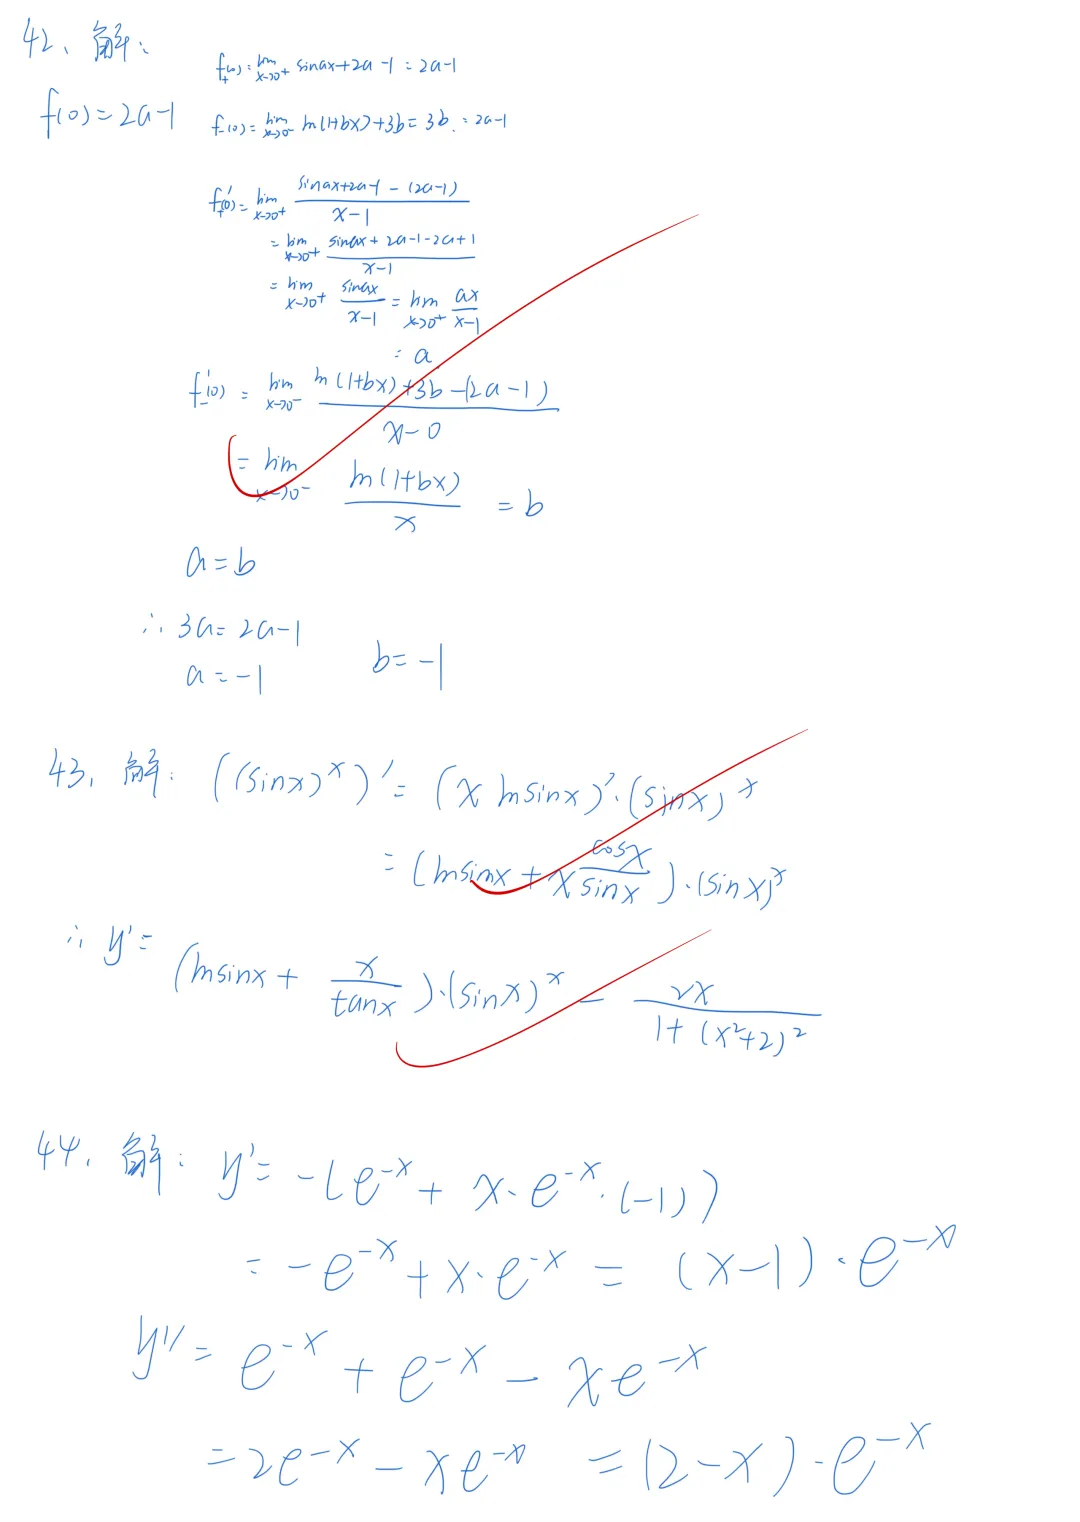 42、解：
f(0)=2a-1
f₊(0)=lim x→0⁺ sinax+2a-1=2a-1
f₋(0)=lim x→0⁻ ln(1+bx)+3b=3b.=2a-1
f₊'(0)=lim x→0⁺ (sinax+2a-1-(2a-1))/(x-1)
=lim x→0⁺ (sinax+2a-1-2a+1)/(x-1)
=lim x→0⁺ sinax/(x-1)=lim x→0⁺ ax/(x-1)
=a
f₋'(0)=lim x→0⁻ (ln(1+bx)+3b-(2a-1))/(x-0)
=lim x→0⁻ ln(1+bx)/x=b
a=b
∴3a=2a-1
a=-1 b=-1
43、解：((sinx)^x)'=(x lnsinx)'·(sinx)^x
=(lnsinx+x cosx/sinx)·(sinx)^x
∴y'=(lnsinx+x/tanx)·(sinx)^x-2x/(1+(x²+2)²)
44、解：y'=-(e^-x+x·e^-x·(-1))
=-e^-x+x·e^-x=(x-1)·e^-x
y''=e^-x+e^-x-xe^-x
=2e^-x-xe^-x=(2-x)·e^-x